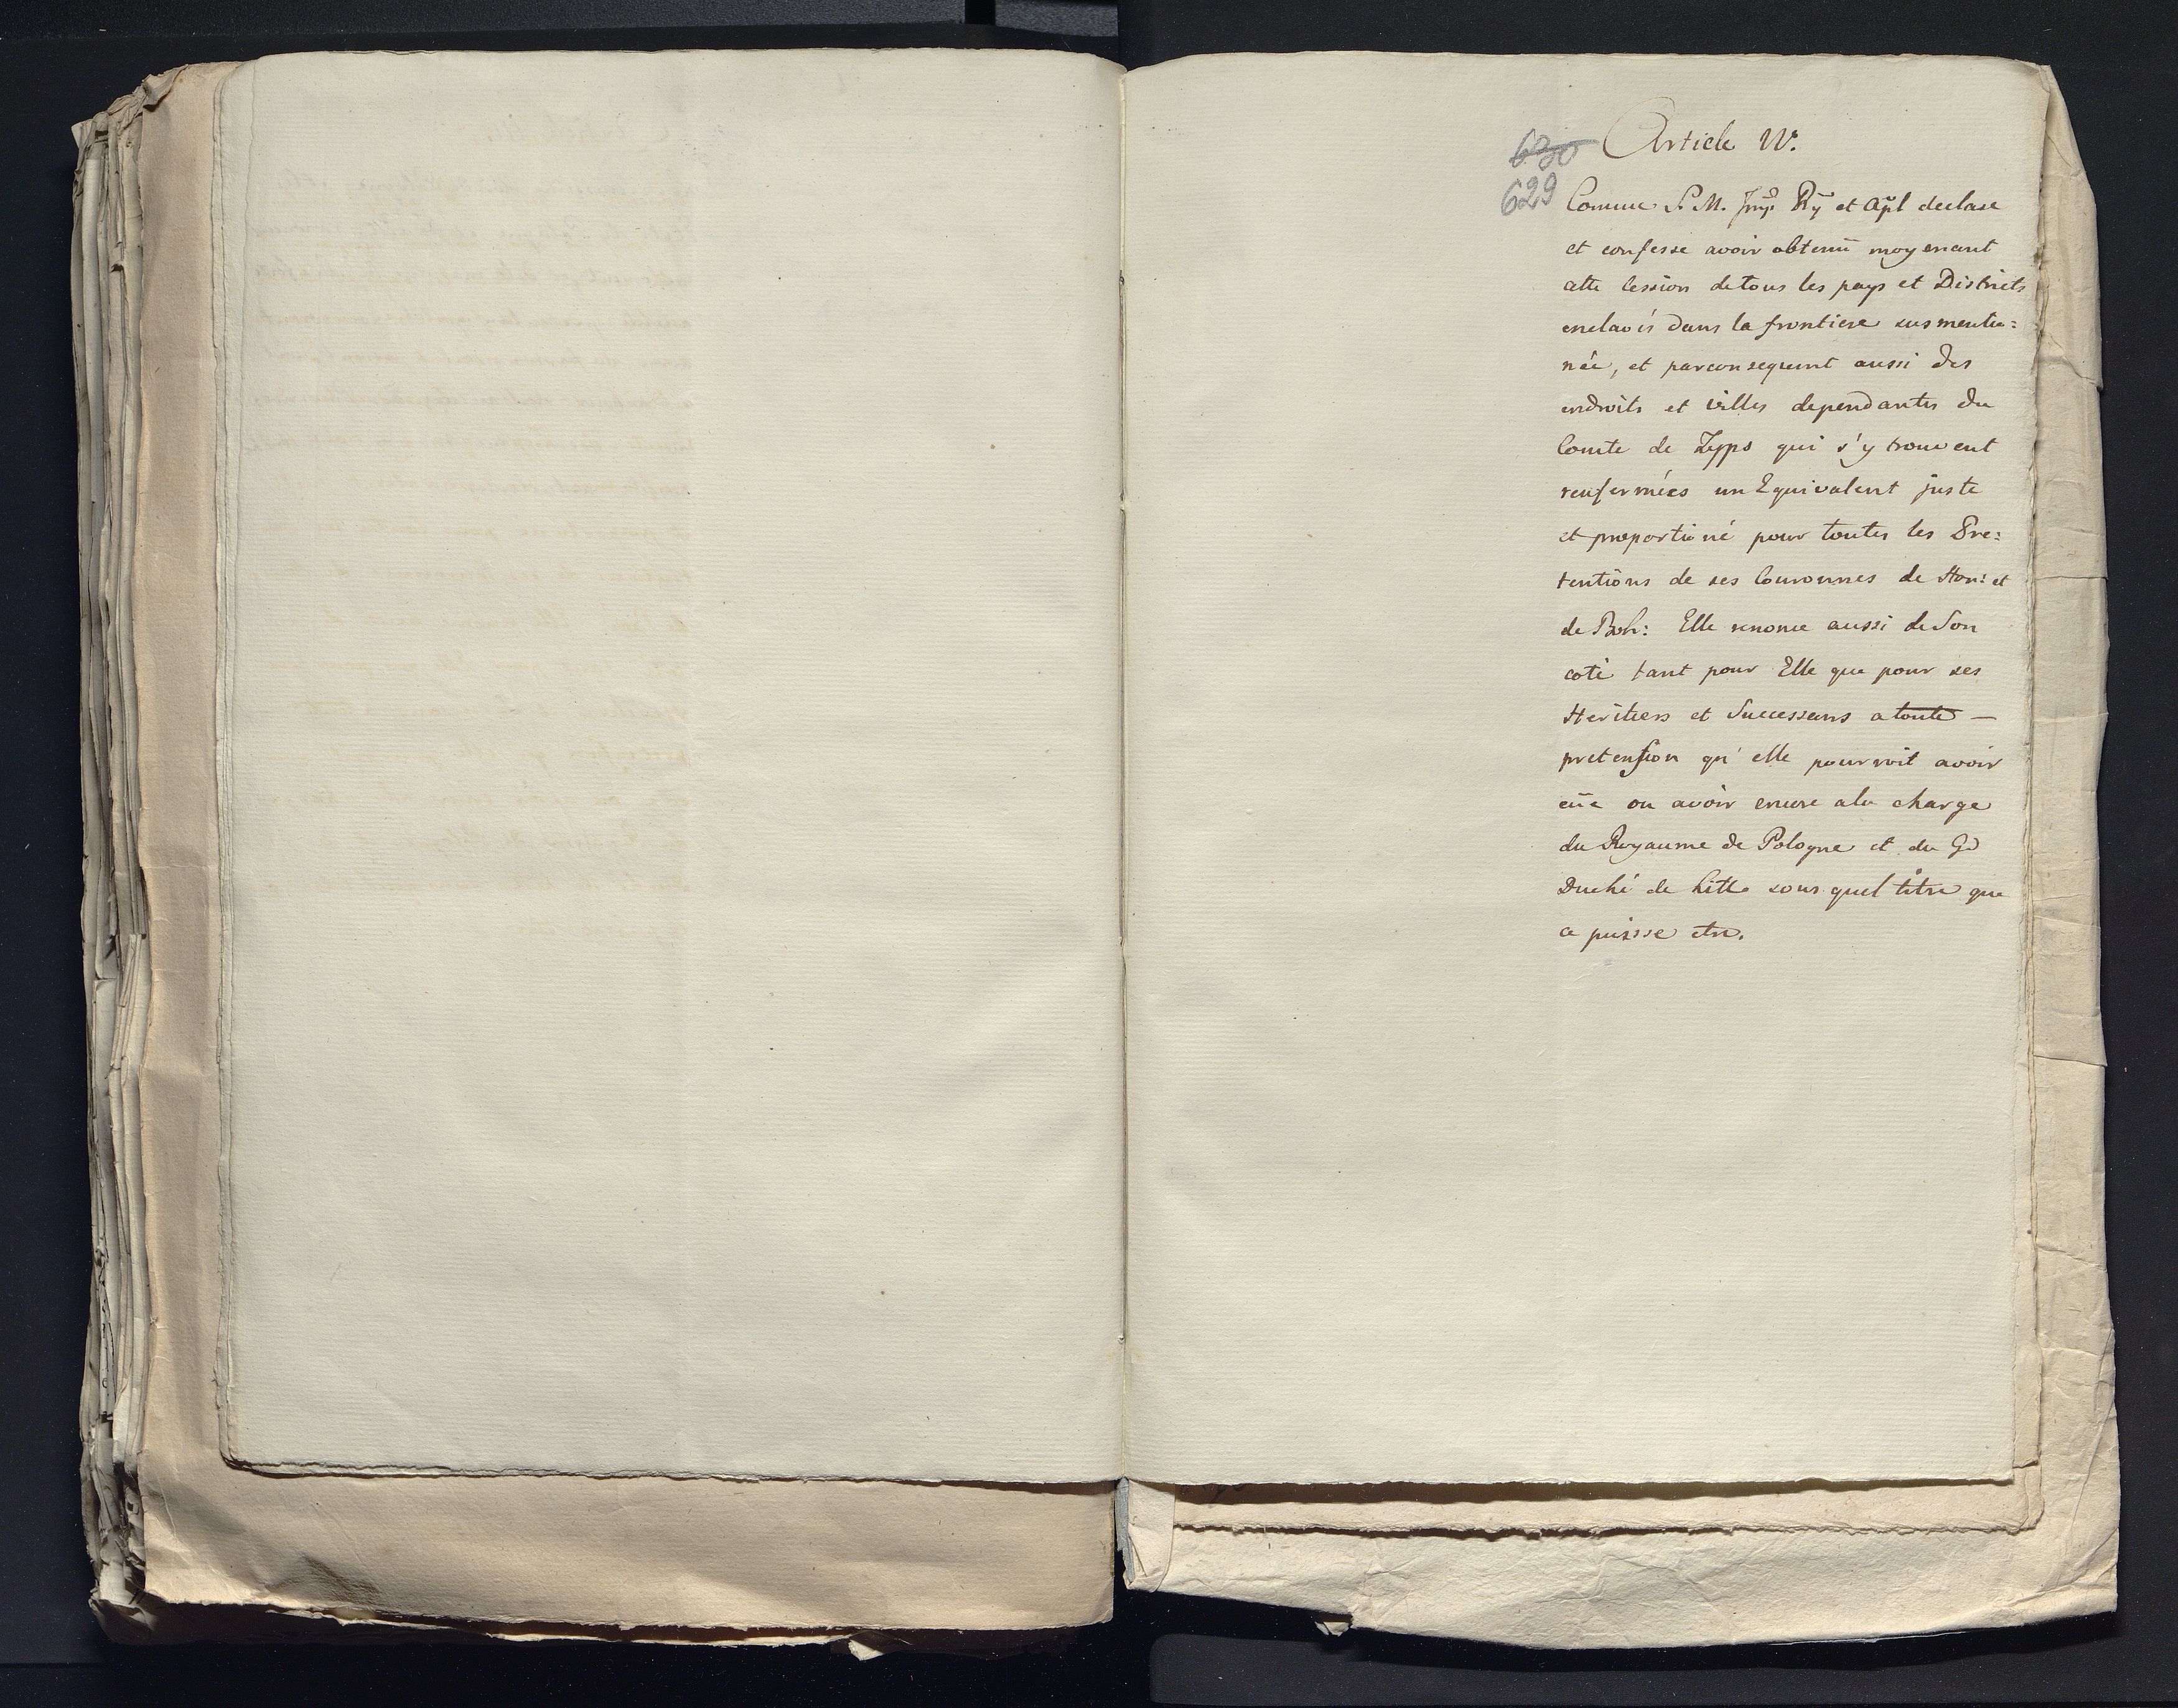 630
629
Article IV.
Comme S. M. Imp. Ry et Apl declare
et confesse avoir obtenü moyenant
cette Cession de tous les pays et Districts
enclavés dans la frontiere susmentio=
née, et parconsequent aussi des
endroits et villes dependantes du
Comte de Zyps qui s'y trouvent
renfermées un Equivalent juste
et proportioné pour toutes les Pre:
tentions de ses Couronnes de Hon: et
de Boh: Elle renonce aussi de Son
coté tant pour Elle que pour ses
Heritiers et Successeurs a toute —
pretension qu'elle pourroit avoir
eüe ou avoir encore a la charge
du Royaume de Pologne et du Gd
Duché de Litt. sous quel titre que
ce puisse etre.